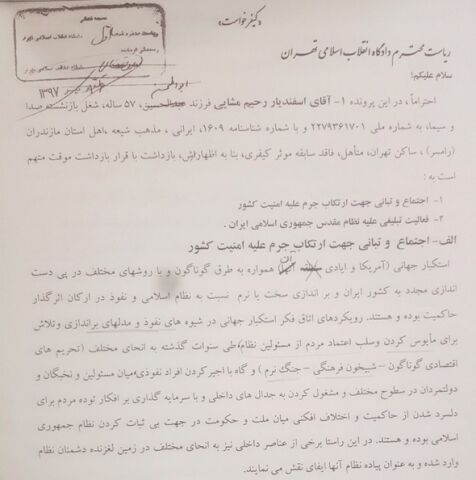 «کیفرخواست»
ریاست محترم دادگاه انقلاب اسلامی تهران
سلام علیکم؛
احتراماً، در این پرونده ۱- آقای اسفندیار رحیم مشایی فرزند ۵۷ ساله، شغل بازنشسته صدا
و سیما، به شماره ملی ۲۲۷۹۳۶۱۷۰۱ و با شماره شناسنامه ۱۶۰۹، ایرانی، مذهب شیعه، اهل استان مازندران
(رامسر) ، ساکن تهران، متأهل، فاقد سابقه موثر کیفری، بنا به اظهارش، بازداشت با قرار بازداشت موقت متهم
است به :
۱- اجتماع و تبانی جهت ارتکاب جرم علیه امنیت کشور
۲- فعالیت تبلیغی علیه نظام مقدس جمهوری اسلامی ایران .
الف- اجتماع و تبانی جهت ارتکاب جرم علیه امنیت کشور
استکبار جهانی (آمریکا و ایادی آن) همواره به طرق گوناگون و با روشهای مختلف در پی دست
اندازی مجدد به کشور ایران و بر اندازی سخت یا نرم نسبت به نظام اسلامی و نفوذ در ارکان اثرگذار
حاکمیت بوده و هستند. رویکردهای اتاق فکر استکبار جهانی در شیوه های نفوذ و مدلهای براندازی وتلاش
برای مأیوس کردن وسلب اعتماد مردم از مسئولین نظام(طی سنوات گذشته به انحای مختلف (تحریم های
اقتصادی گوناگون – شبیخون فرهنگی – جنگ نرم ) و گاه با اجیر کردن افراد نفوذی)میان مسئولین و نخبگان و
دولتمردان در سطوح مختلف و مشغول کردن به جدال های داخلی و با سرمایه گذاری بر افکار توده مردم برای
دلسرد شدن از حاکمیت و اختلاف افکنی میان ملت و حکومت در جهت بی ثبات کردن نظام جمهوری
اسلامی بوده و هستند. در این راستا برخی از عناصر داخلی نیز به انحای مختلف در زمین لغزنده دشمنان نظام
وارد شده و به عنوان پیاده نظام آنها ایفای نقش می نمایند.